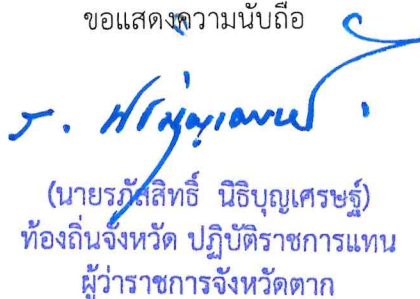 ขอแสดงความนับถือ
(นายรภัสสิทธิ์ นิธิบุญเศรษฐ์)
ท้องถิ่นจังหวัด ปฏิบัติราชการแทน
ผู้ว่าราชการจังหวัดตาก